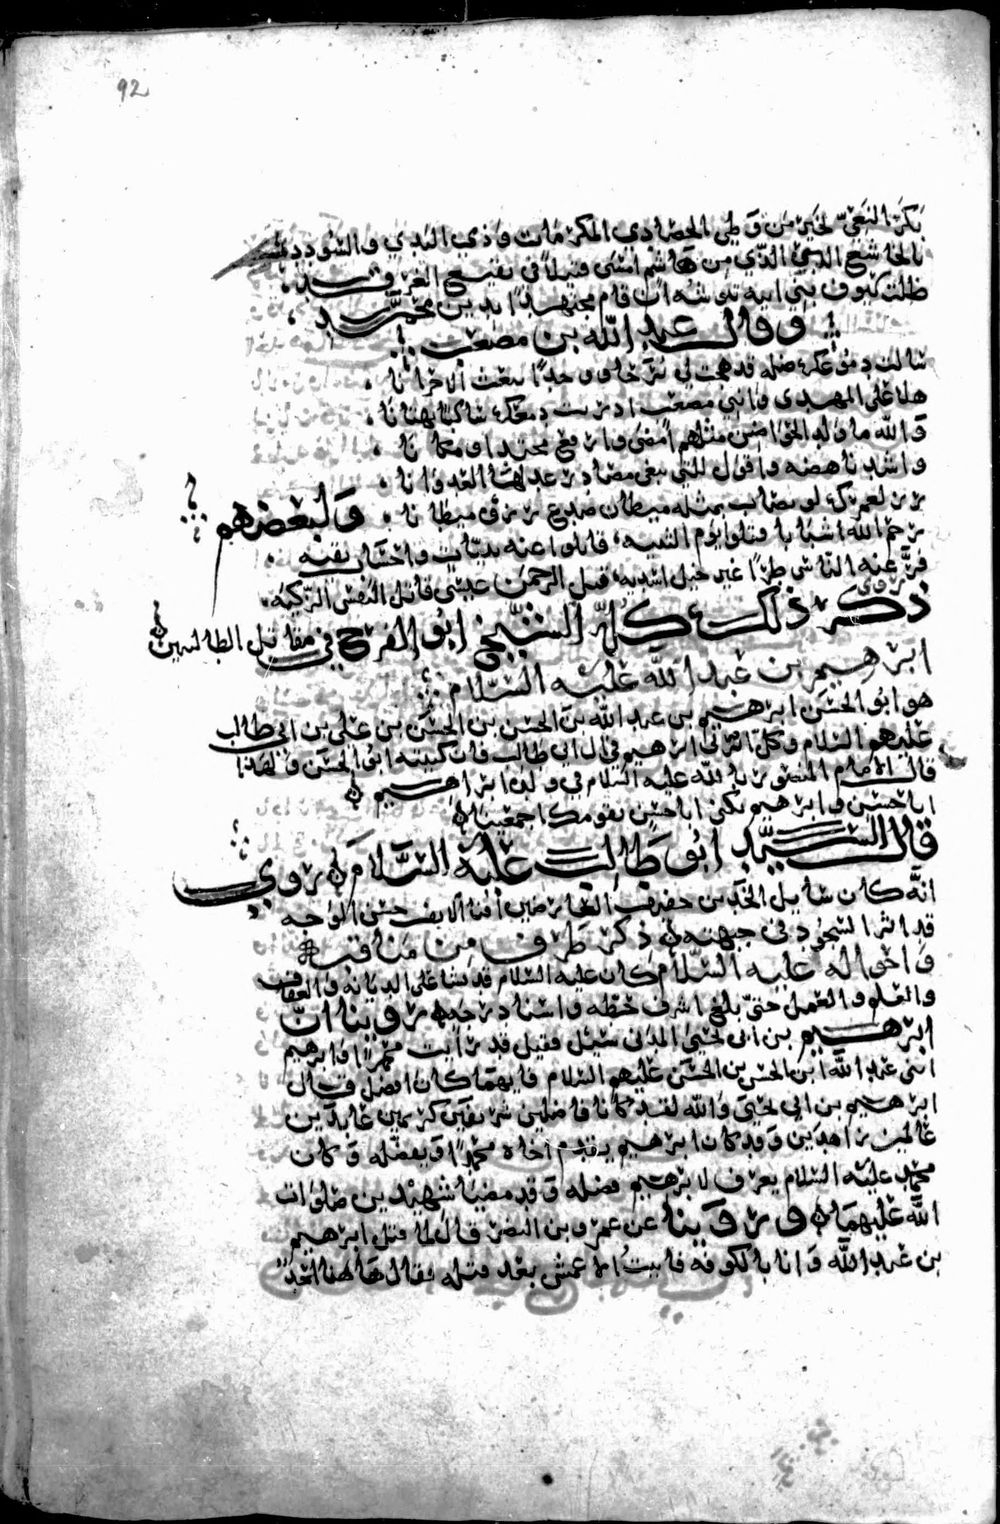 92
بكر النعي لخير من وطي الحصا ذي المكرمات وذي الندي والسودد
بالخاشع الذي من هاشم امسى قتيلا في بقيع الغرقد
ظلت سيوف بني ابيه تنوشه ان قام مجتهدا بدين محمد
وقال عبد الله بن مصعب
سالت دموعك ضلة قد هجت لي برحا ووجدا يبعث الاحزانا
هلا على المهدي وابني مصعب اذريت دمعك ساكبا تهتانا
والله ما ولد الحواضن مثلهم امضى وارفع محتدا ومكانا
واشد ناهضة واقول للتي تنفي مصادر عدلها العدوانا
رزء لعمرك لو يصاب بمثله ميطان صدع رزؤه ميطانا ولبعضهم
رحم الله شبابا قتلوا يوم الثنية قاتلوا عنه بنيات واحساب نقية
فر عنه الناس طرا غير خيل اسدية قتل الرحمن عيسى قاتل النفس الزكية
ذكر ذلك كله الشيخ ابو الفرج في مقاتل الطالبيين
ابرهيم بن عبد الله عليه السلام
هو ابو الحسن ابرهيم بن عبد الله بن الحسن بن الحسن بن علي بن ابي طالب
عليهم السلام وكل ابرهيم في ال ابي طالب فان كنيته ابو الحسن ولهذا
قال الامام المنصور بالله عليه السلام في ولده ابراهيم
ابا حسن ابرهيم تكن ابا حسن بقومك اجمعينا
قال السيد ابو طالب عليه السلام روي
انه كان سايل الخدين خفيف العارضين اقنا الانف حسن الوجه
قد اثر السجود في جبهته ذكر طرف من مناقبه
واحواله عليه السلام كان عليه السلام قد نشا على الديانة والعفاف
والعلم والعمل حتى بلغ اشرف خطه واسنا درجه روينا ان
ابرهيم بن ابي يحيى المدني سئل فقيل قد رايت محمدا وابرهيم
ابني عبد الله ابن الحسن بن الحسن عليهم السلام فايهما كان افضل فقال
ابرهيم بن ابي يحيى والله لقد كانا فاضلين شريفين كريمين عابدين
عالمين زاهدين وقد كان ابرهيم يقدم اخاه محمدا ويفضله وكان
محمد عليه السلام يعرف لابرهيم فضله وقد مضيا شهيدين صلوات
الله عليهما وروينا عن عمرو بن النضر قال لما قتل ابرهيم
بن عبد الله وانا بالكوفة فاتيت الاعمش بعد قتله فقال هاهنا احد